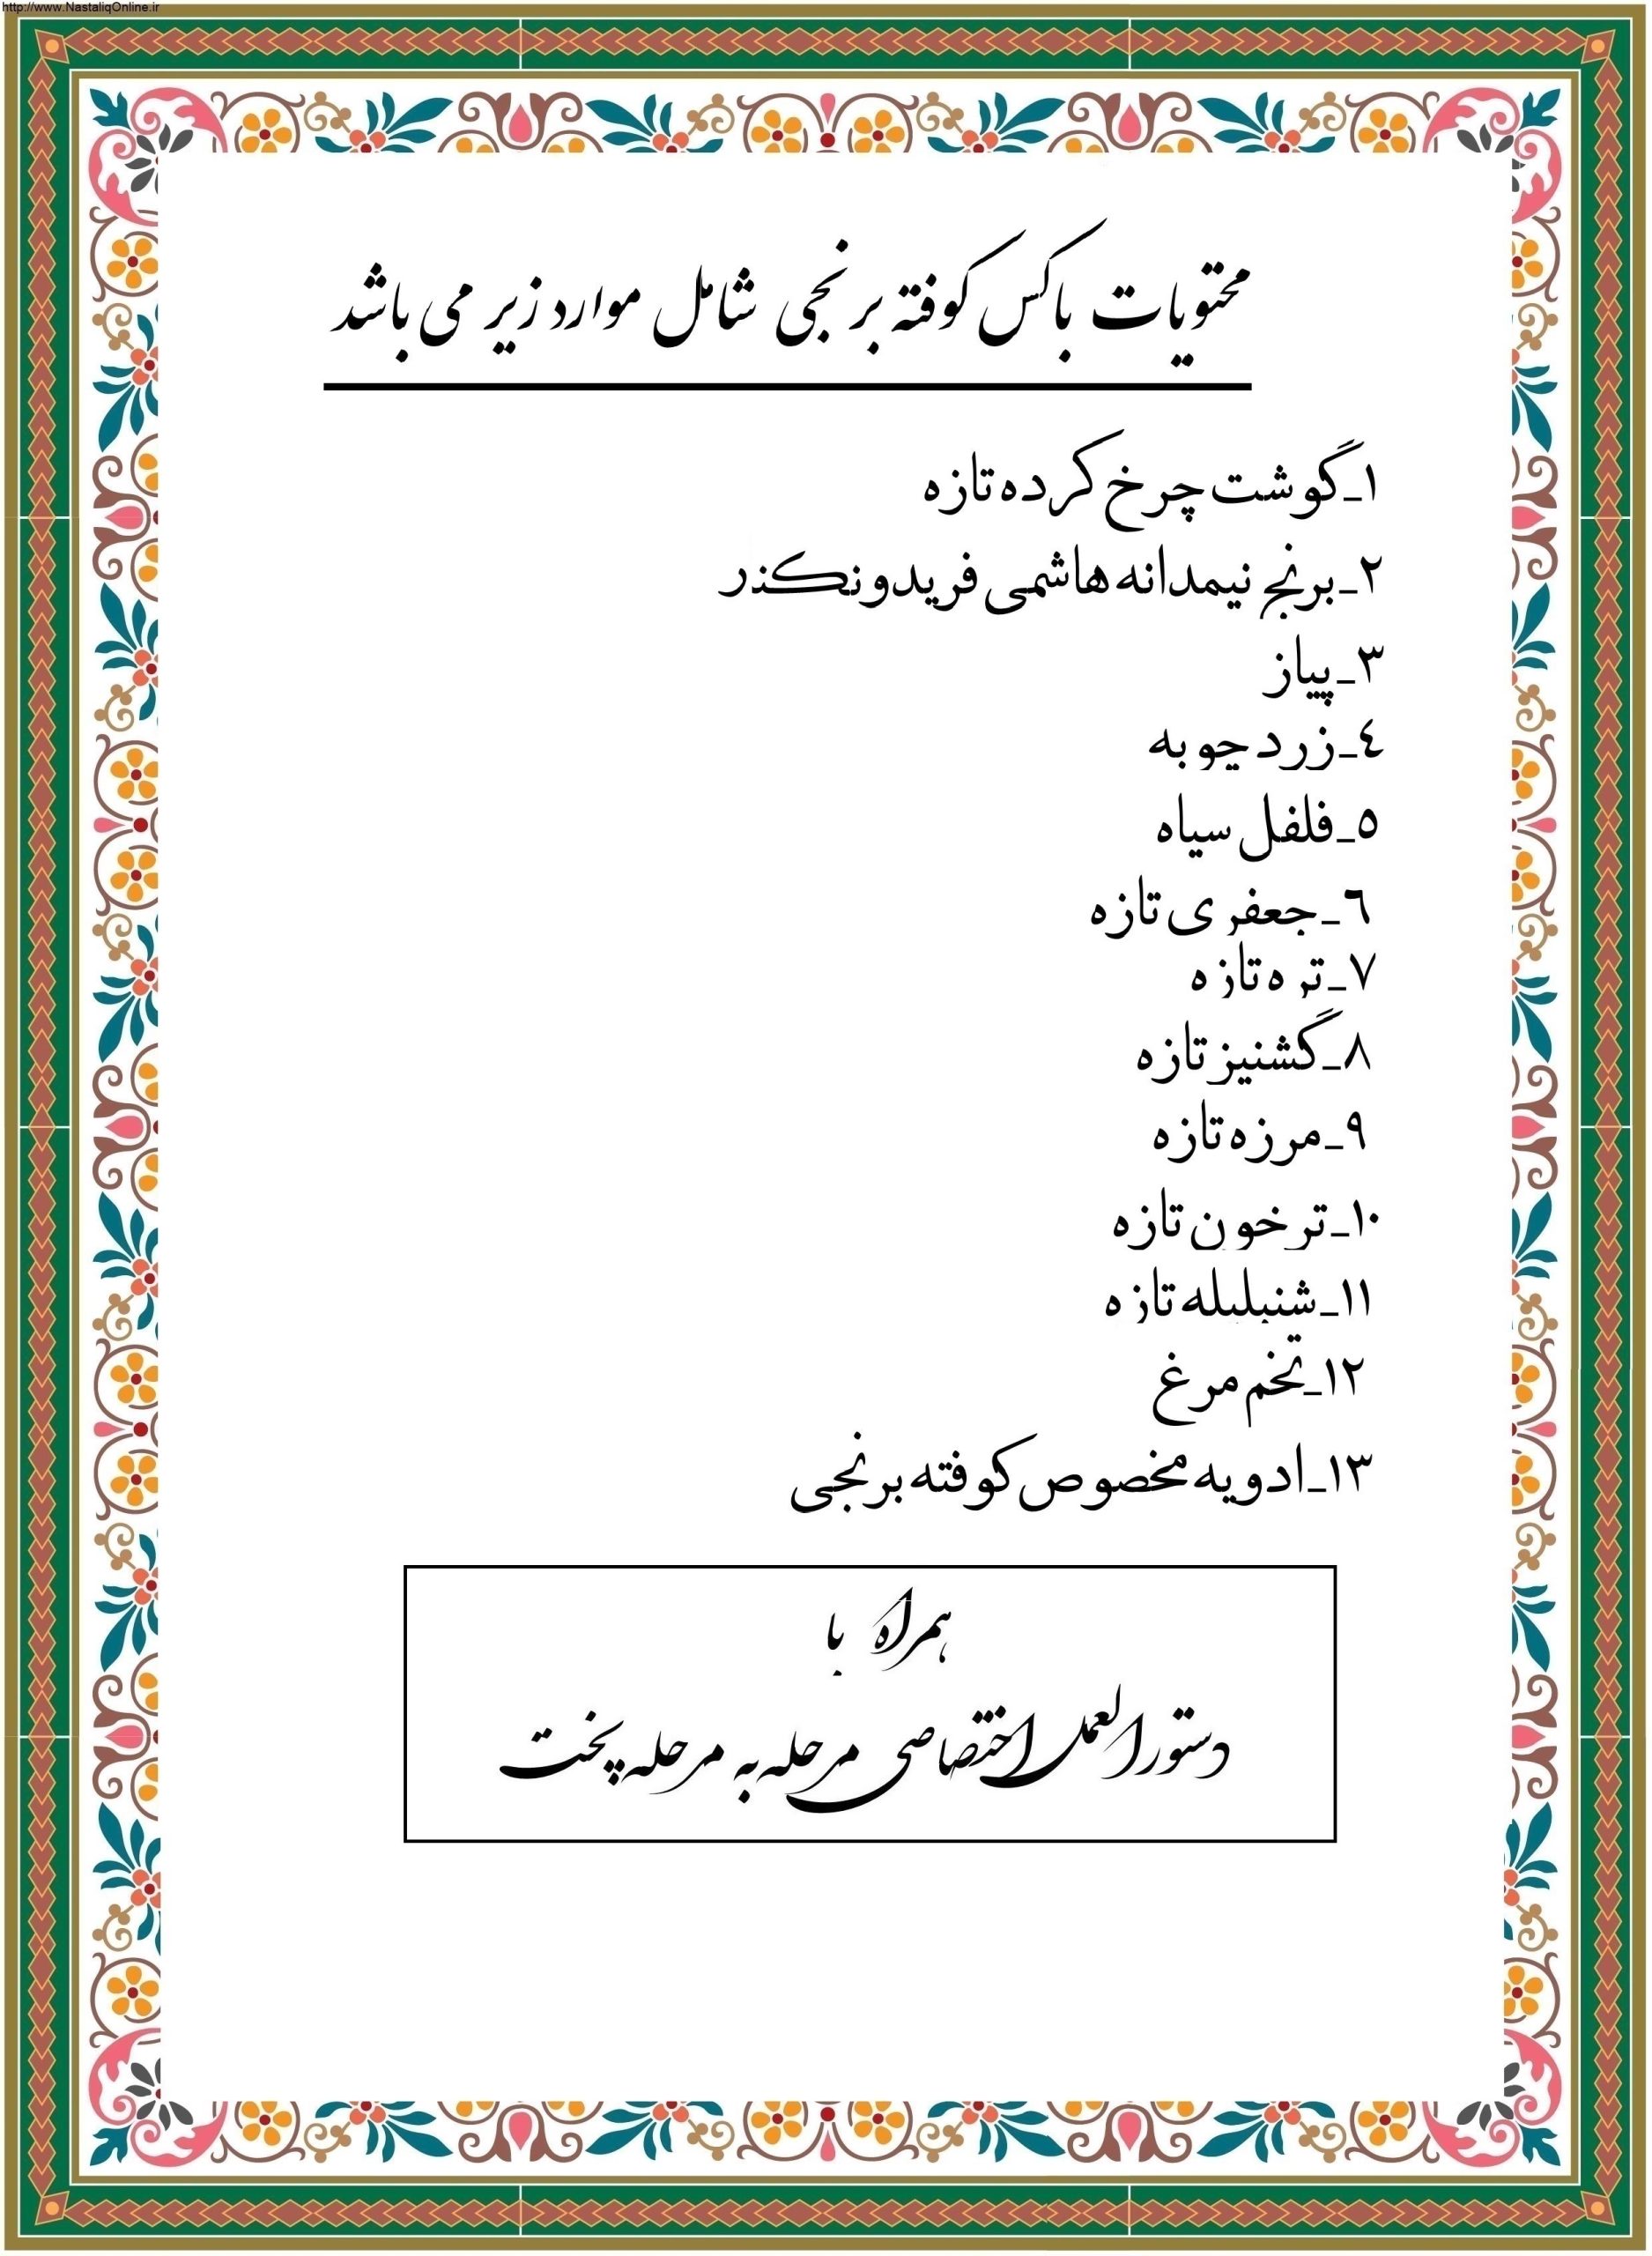 http://www.NastaliqOnline.ir
محتویات باکس کوفته برنجی شامل موارد زیر می باشد
۱_گوشت چرخ کرده تازه
۲_برنج نیمدانه هاشمی فریدونکنار
۳_پیاز
٤_زردچوبه
٥_فلفل سیاه
٦_جعفری تازه
۷_تره تازه
۸_گشنیز تازه
۹_مرزه تازه
۱۰_ترخون تازه
۱۱_شنبلیله تازه
۱۲_تخم مرغ
۱۳_ادویه مخصوص کوفته برنجی
همراه با
دستورالعمل اختصاصی مرحله به مرحله پخت